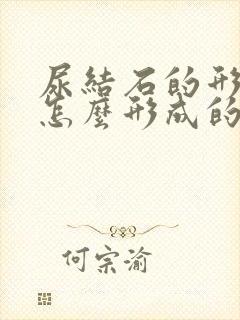 尿結石的形
怎麼形成的
何宗渝